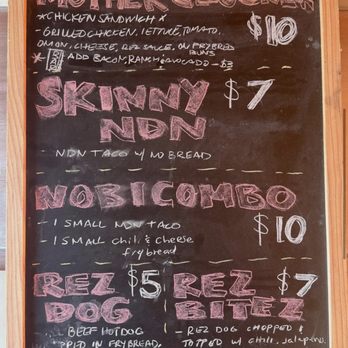 MOTHER CLUCKER $10
*CHICKEN SANDWICH*
- GRILLED CHICKEN, LETTUCE, TOMATO,
ONION, CHEESE, REZ SAUCE, ON FRYBRED
BUNS
* ADD BACON, RANCH & AVOCADO - $3
SKINNY $7
NDN
- NDN TACO W/ NO BREAD
NOBI COMBO
- 1 SMALL NDN TACO $10
- 1 SMALL chili & cheese
frybread
REZ $5
DOG
BEEF HOTDOG
FRYBREAD,
REZ $7
BITEZ
- REZ DOG CHOPPED &
TOPPED W/ chili, jalapeno,